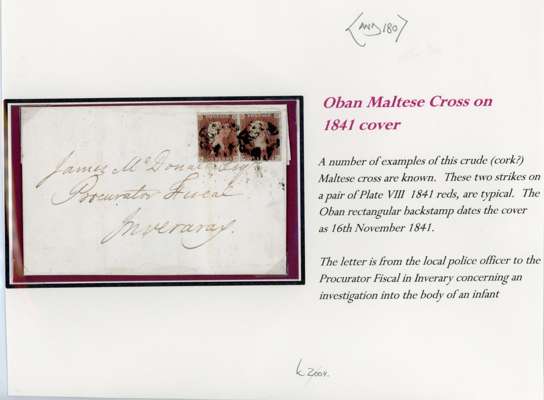 <ANG 180>
Oban Maltese Cross on
1841 cover
A number of examples of this crude (cork?)
Maltese cross are known. These two strikes on
a pair of Plate VIII 1841 reds, are typical. The
Oban rectangular backstamp dates the cover
as 16th November 1841.
The letter is from the local police officer to the
Procurator Fiscal in Inverary concerning an
investigation into the body of an infant
James McDonald Esqr
Procurator Fiscal
Inveraray.